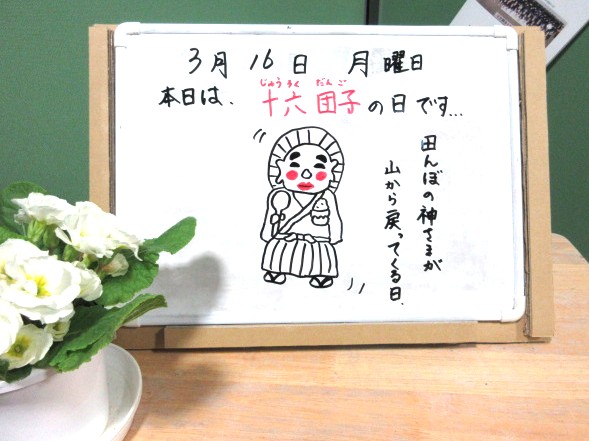 3月16日 月曜日
じゅうろく だんご
本日は、十六団子の日です…
田んぼの神さまが
山から戻ってくる日、